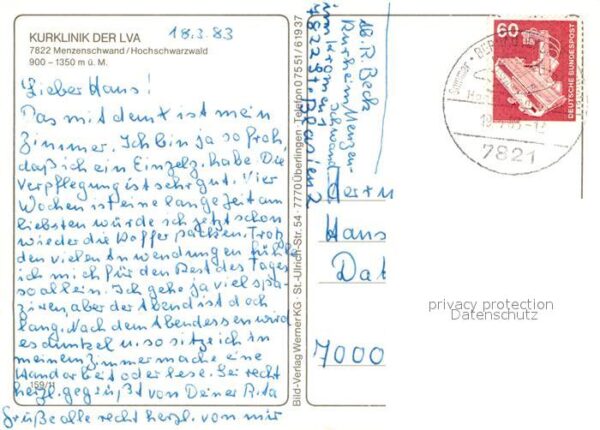 KURKLINIK DER LVA
7822 Menzenschwand / Hochschwarzwald
900 – 1350 m ü. M.
18.3.83
Lieber Hans!
Das mit dem X ist mein
Zimmer. Ich bin ja so froh,
daß ich ein Einzelz. habe. Die
Verpflegung ist sehr gut. Vier
Wochen ist eine lange Zeit am
liebsten würde ich jetzt schon
wieder die Koffer packen. Trotz
den vielen Anwendungen fühle
ich mich für den Rest des Tages
so allein. Ich gehe ja viel spa-
zieren, aber der Abend ist doch
lang. Nach dem Abendessen wird
es dunkel u. so sitze ich in
meinem Zimmer mache eine
Handarbeit oder lese. Sei recht
herzl. gegrüßt von Deiner Rita
Grüße alle recht herzl. von mir
159/11
Bild-Verlag Werner KG · St.-Ulrich-Str. 54 · 7770 Überlingen · Telefon 07551/61937
R. Beck
Kurheim Menzen-
schwand
7822 St. Blasien 2
60
DEUTSCHE BUNDESPOST
Sommer
7821
Hans
7000
privacy protection
Datenschutz